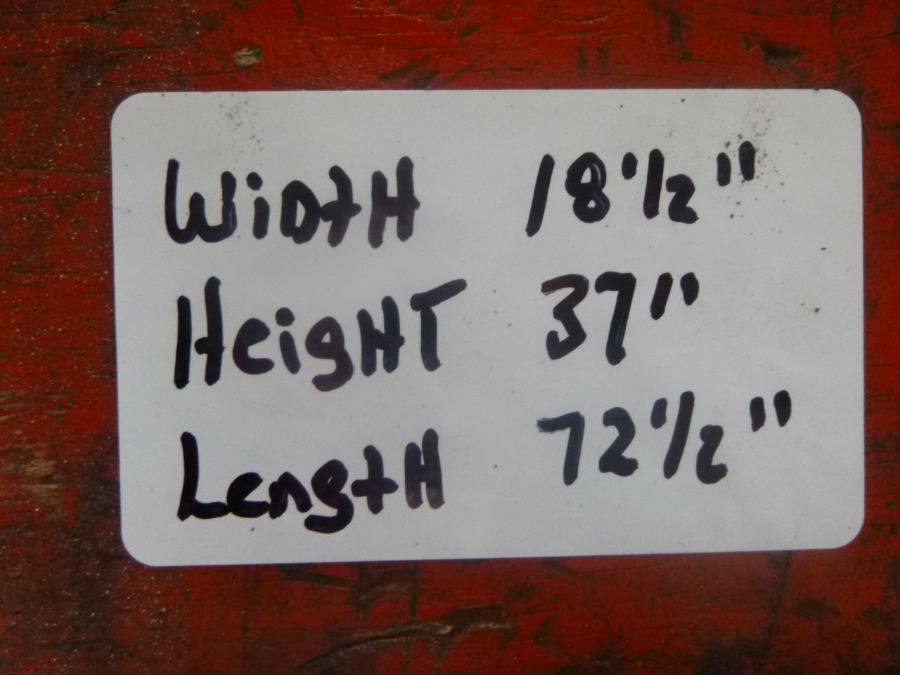 Width 18 1/2"
Height 37"
Length 72 1/2"